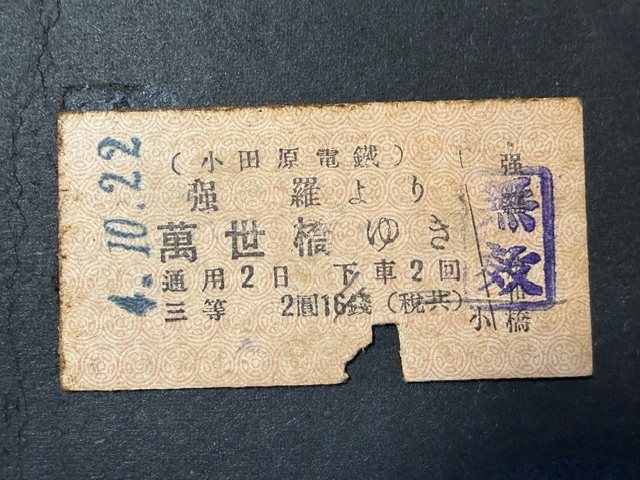 4.10.22
(小田原電鐵)
强羅より
萬世橋ゆき
通用2日 下車2回
三等 2圓16錢(税共)
强
橋
小
無効